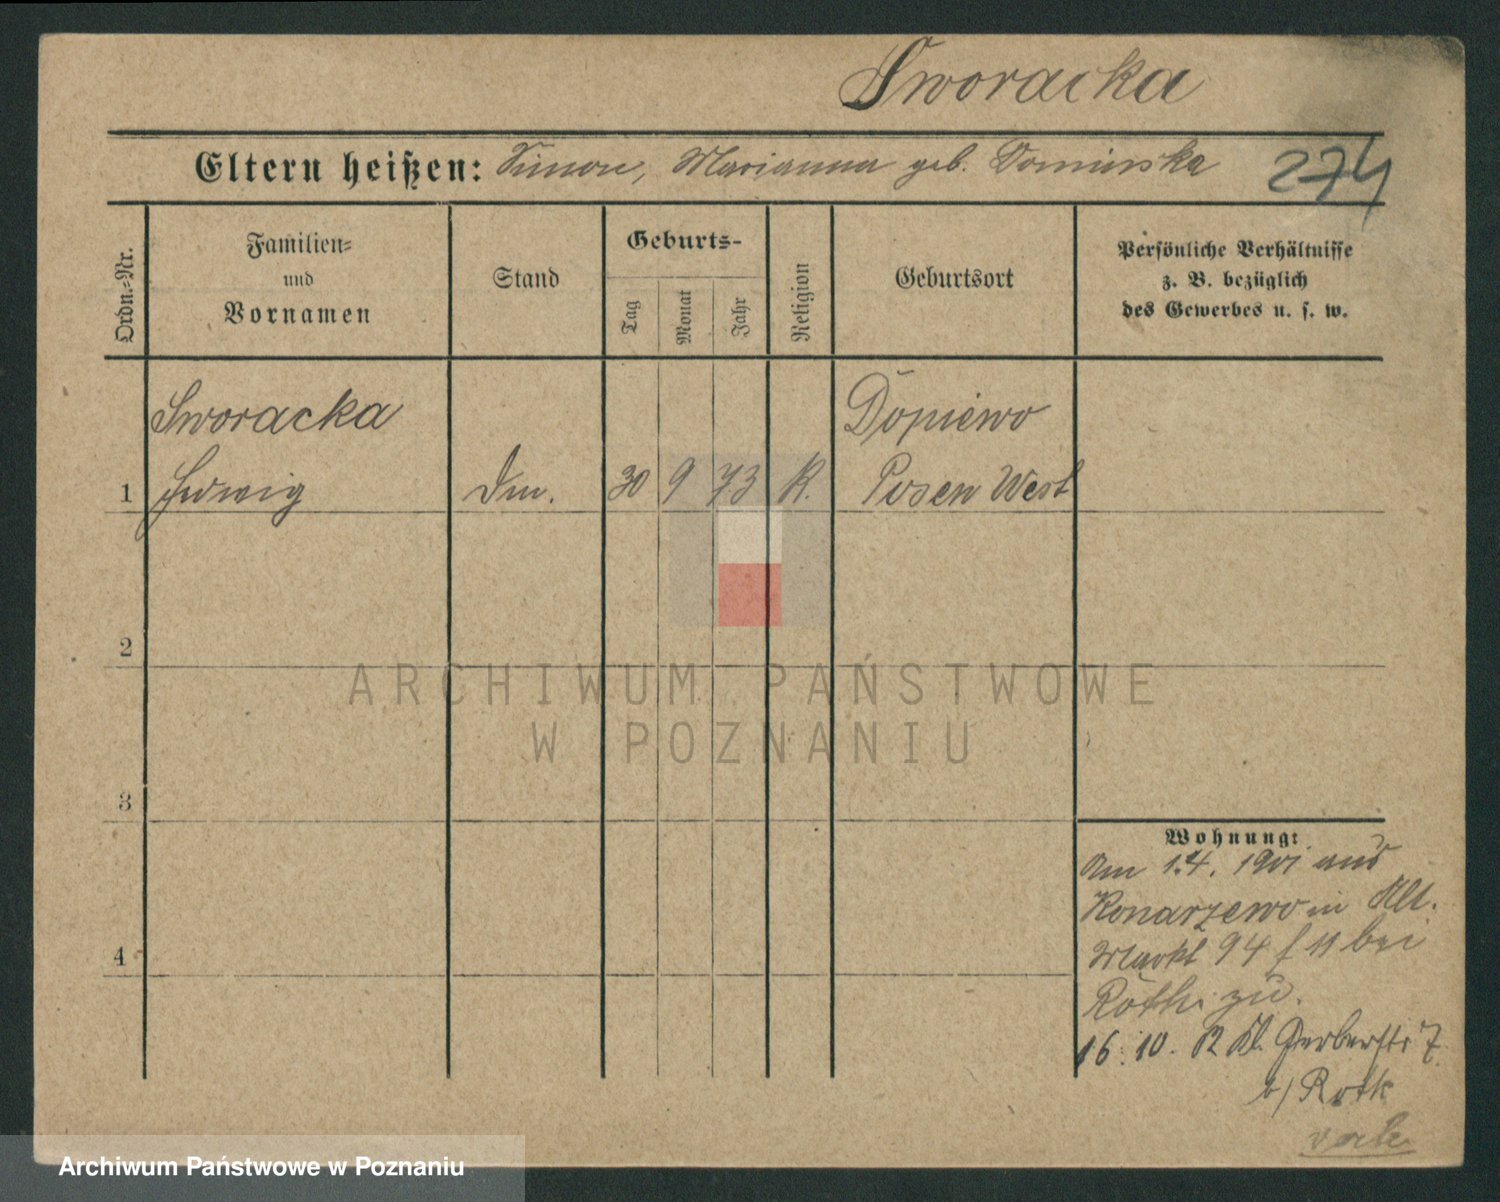 Sworacka
Eltern heißen: Simon, Marianna geb. Dominska
274
Ordn.-Nr.
Familien-
und
Vornamen
Stand
Geburts-
Tag
Monat
Jahr
Religion
Geburtsort
Persönliche Verhältnisse
z. B. bezüglich
des Gewerbes u. s. w.
Sworacka
Dopiewo
1 Hedwig Dm. 30 9 73 K. Posen West
2
ARCHIWUM PAŃSTWOWE
W POZNANIU
3
Wohnung:
Am 1.4. 1901 aus
Konarzewo in Alt.
4
Markt 94 f 11 bei
Roth zu.
16.10. 02 Kl. Gerberstr 7
b/ Roth
Archiwum Państwowe w Poznaniu